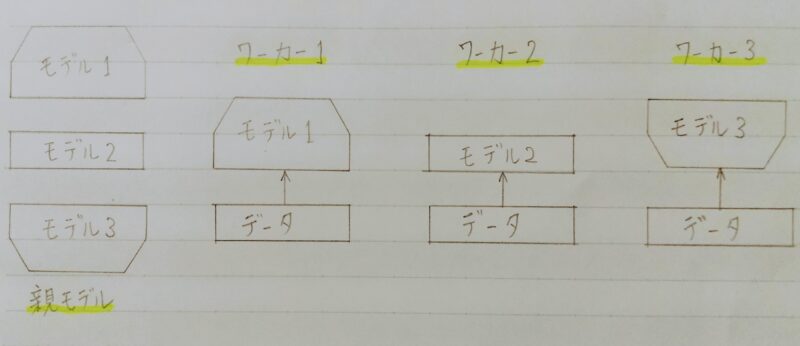 モデル1
モデル2
モデル3
親モデル
ワーカー1
モデル1
データ
ワーカー2
モデル2
データ
ワーカー3
モデル3
データ